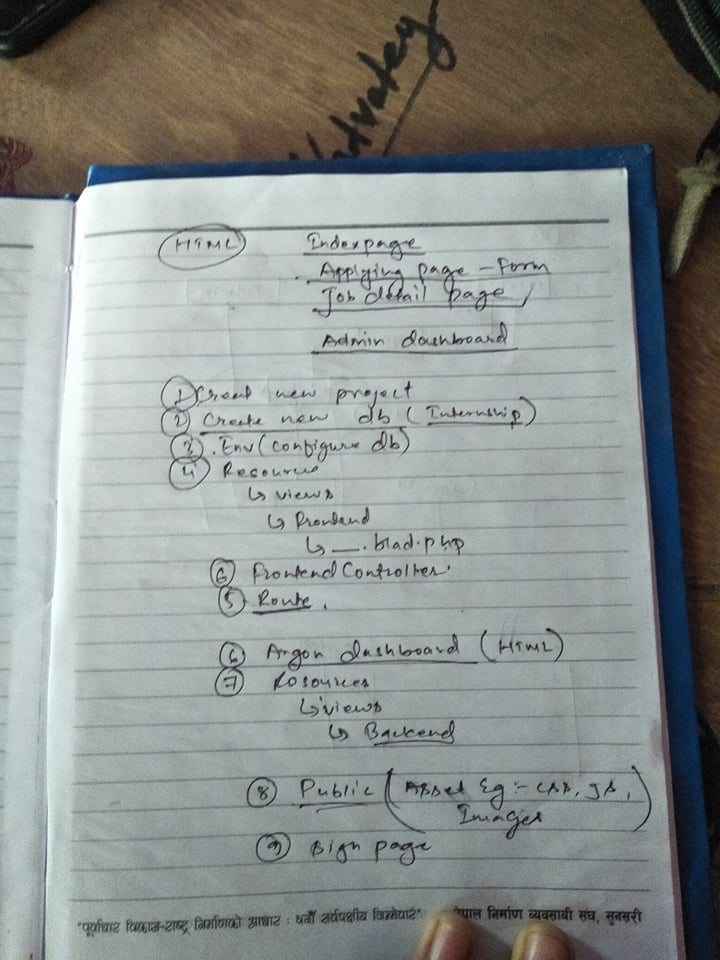 HTML Indexpage
Applying page - Form
Job detail page
Admin dashboard
① Creat new project
② Create new db (Internship)
③ .Env (configure db)
④ Resources
↳ views
↳ Frontend
↳ __.blad.php
⑥ FrontendController.
⑤ Route.
⑥ Argon dashboard (HTML)
⑦ Resources
↳ views
↳ Backend
⑧ Public (Asset Eg :- CSS, JS,
Images)
⑨ Sign page
"पूर्वाधार विकास-राष्ट्र निर्माणको आधार : बनौं सर्वपक्षीय जिम्मेवार" नेपाल निर्माण व्यवसायी संघ, सुनसरी